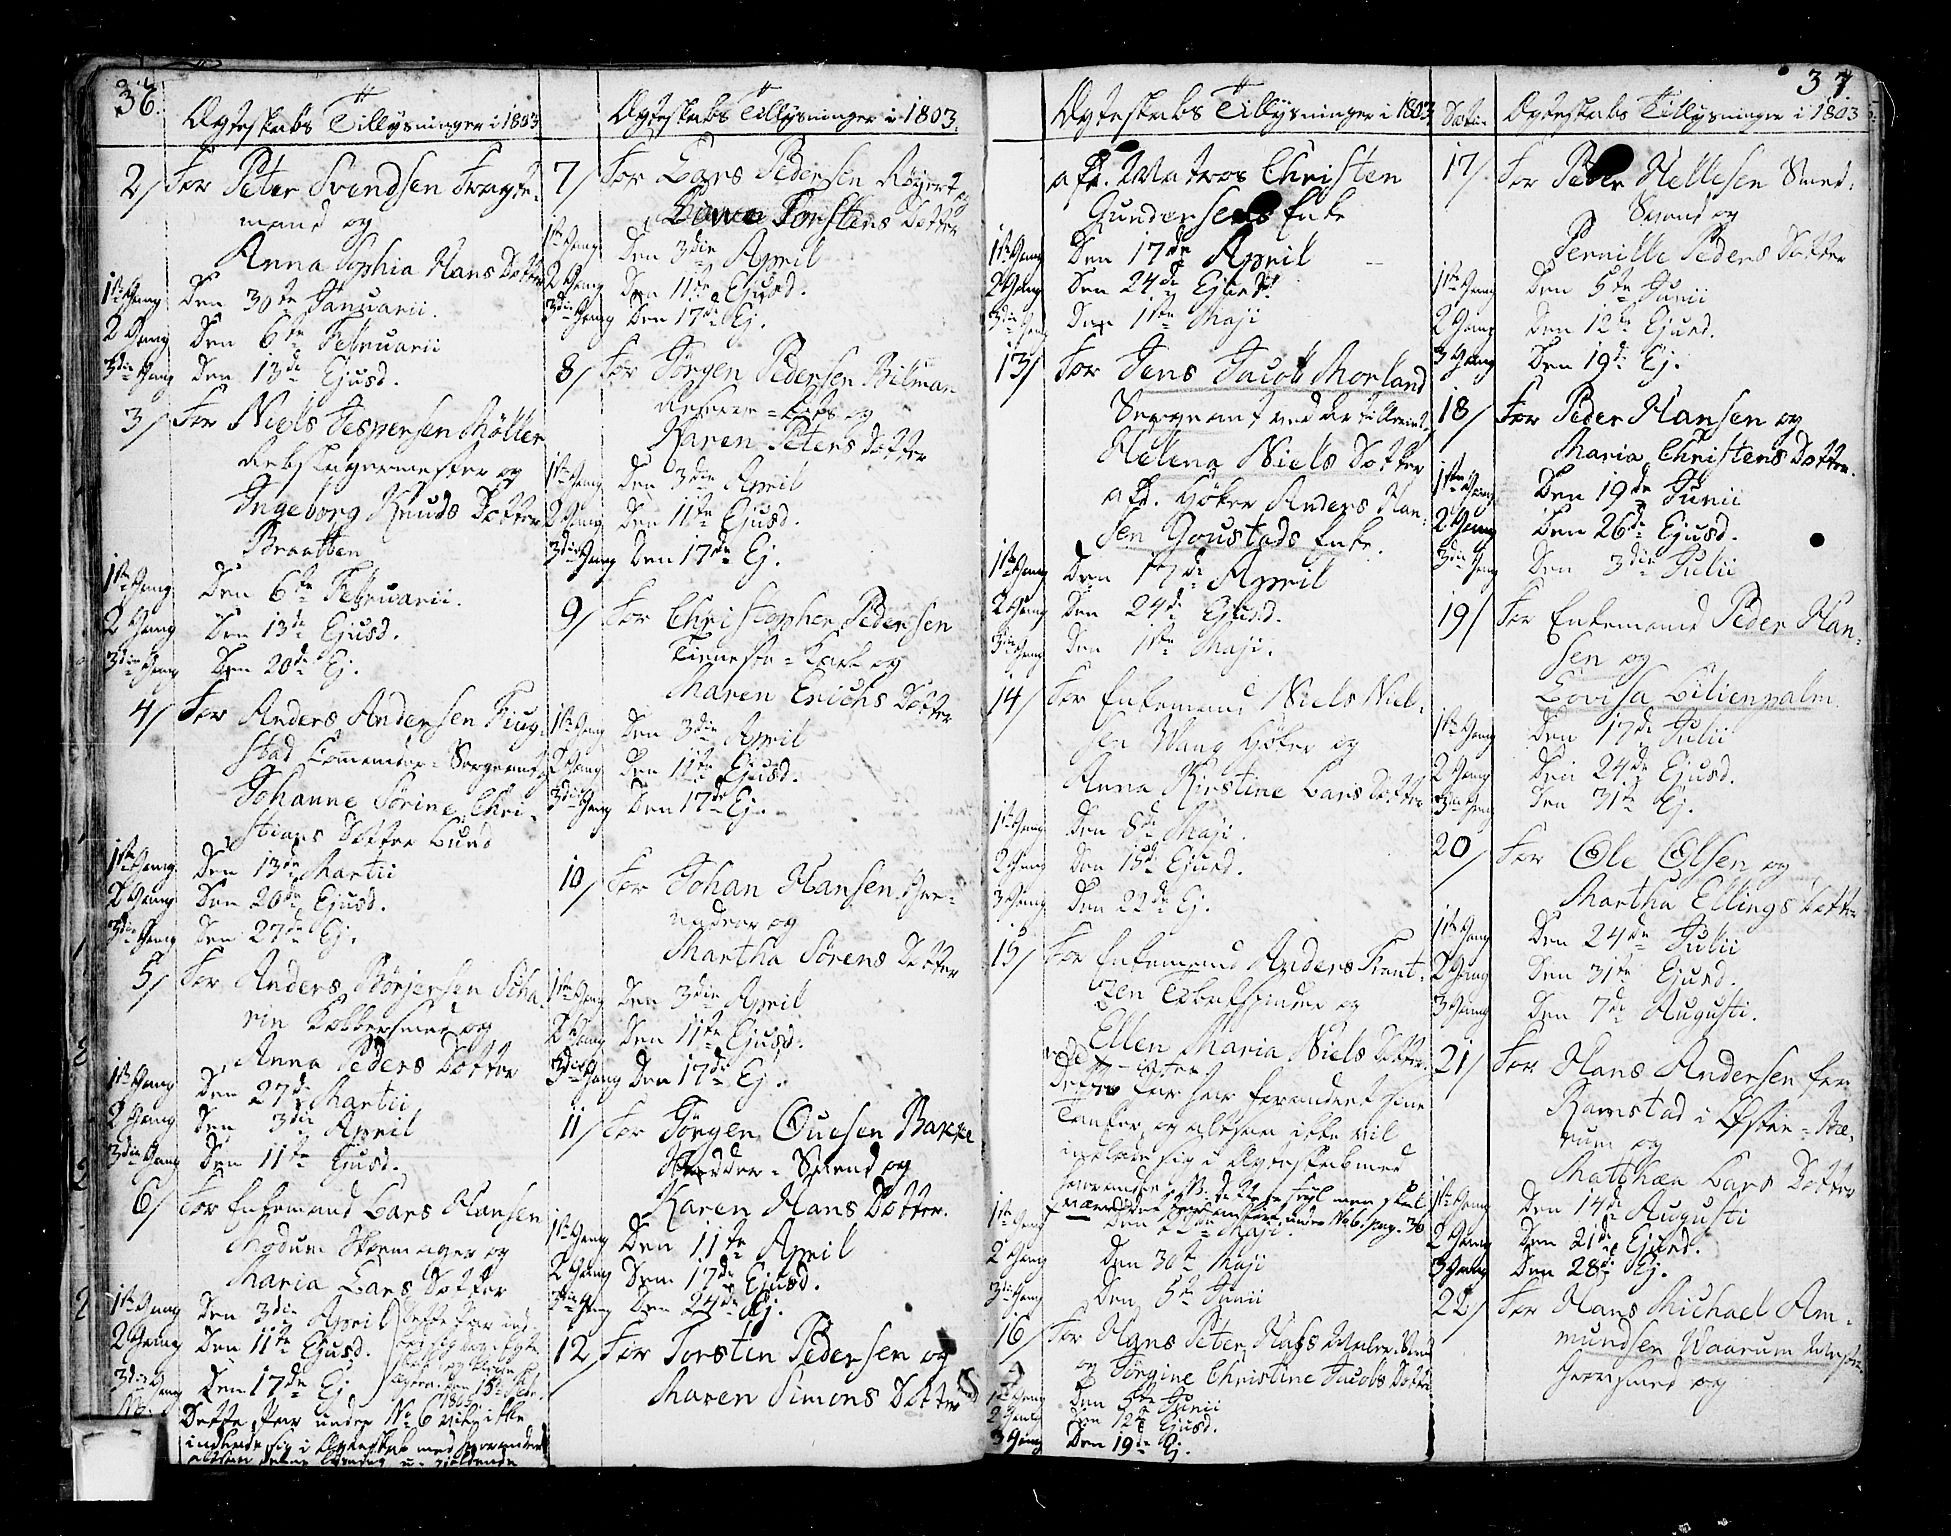 36.
Ægteskabs Tillysninger i 1803
2/ For Peter Svendsen
mand og
Anna Sophia Hans Dotter
1ste Gang Den 30te Januarii.
2 Gang Den 6te Februarii
3die Gang Den 13de Ejusd.
3/ For Niels Jespersen Møller
Rebslagermester og
Ingeborg Knuds Dotter
Braatten
1ste Gang Den 6te Februarii.
2 Gang Den 13de Ejusd.
3die Gang Den 20de Ej.
4/ For Anders Andersen
stad Sergeant og
Johanne Sørine Chri-
stians Dotter Lund
1ste Gang Den 13de Martii
2 Gang Den 20de Ejusd.
3die Gang Den 27de Ej.
5/ For Anders Børjersen Scha-
rin Kobbersmed og
Anna Peders Dotter
1ste Gang Den 27de Martii
2 Gang Den 3die April
3die Gang Den 11te Ejusd.
6/ For Enkemand Lars Hansen
Modum Skomager og
Maria Lars Dotter
1ste Gang Den 3die April
2 Gang Den 11te Ejusd.
3die Gang Den 17de Ej.
Dette Par
Dette Par under No 6 vil ikke
indlade sig i Ægteskab med hverandre
Ægteskabs Tillysninger i 1803.
7/ For Lars Pedersen og
Torstens Dotter
1ste Gang Den 3die April
2 Gang Den 11te Ejusd.
3die Gang Den 17de Ej.
8/ For Jørgen Pedersen Bilman
og
Karen Peters Dotter
1ste Gang Den 3die April
2 Gang Den 11te Ejusd.
3die Gang Den 17de Ej.
9/ For Christopher Pedersen
Tieneste-Karl og
Maren Erichs Dotter
1ste Gang Den 3die April
2 Gang Den 11te Ejusd.
3die Gang Den 17de Ej.
10/ For Johan Hansen
og
Martha Sørens Dotter
1ste Gang Den 3die April
2 Gang Den 11te Ejusd.
3die Gang Den 17de Ej.
11/ For Jørgen Ouesen Bakke
Svend og
Karen Hans Dotter.
1ste Gang Den 11te April
2 Gang Den 17de Ejusd.
3die Gang Den 24de Ej.
12 For Torsten Pedersen og
Maren Simons Dotter
Ægteskabs Tillysninger i 1803.
afd. Matros Christen
Gundersens Enke
1ste Gang Den 17de April
2 Gang Den 24de Ejusd.
3die Gang Den 1ste Maji
13/ For Jens Jacob Morland
Sergeant ved Artilleriet,
Helena Niels Dotter
afd. Høker Anders Han-
sen Goustads Enke.
1ste Gang Den 17de April
2 Gang Den 24de Ejusd.
3die Gang Den 1ste Maji.
14/ For Enkemand Niels Niel-
sen Wang Høker og
Anna Kirstine Lars Dotter
1ste Gang Den 8de Maji.
2 Gang Den 15de Ejusd.
3 Gang Den 22de Ej.
15/ For Enkemand Anders Frant-
zen og
Ellen Maria Niels Dotter
Dette Par har forandret sine
Tanker, og altsaa ikke vil
indlade sig i Ægteskab med
hverandre. NB. dette men skal
være under No 6. pag. 36
1ste Gang Den Maji.
2 Gang Den 30te Maji
3die Gang Den 5te Junii
16/ For Hans Peter
og Jørgine Christine Jacobs Dotter
1ste Gang Den 5te Junii
2 Gang Den 12te Ejusd.
3 Gang Den 19de Ej.
37.
Ægteskabs Tillysninger i 1803
17/ For Peder Hellesen Smed-
Svend og
Pernille Peders Dotter
1ste Gang Den 5te Junii
2 Gang Den 12te Ejusd.
3 Gang Den 19de Ej.
18/ For Peder Hansen og
Maria Christens Dotter.
1ste Gang Den 19de Junii
2 Gang Den 26de Ejusd.
3die Gang Den 3die Julii
19/ For Enkemand Peder Han-
sen og
Lovisa Lilienpalm.
1ste Gang Den 17de Julii
2 Gang Den 24de Ejusd.
3die Gang Den 31te Ej.
20/ For Ole Olsen og
Martha Ellings Dotter
1ste Gang Den 24de Julii
2 Gang Den 31te Ejusd.
3 Gang Den 7de Augusti.
21/ For Hans Andersen fra
Ramstad i Østre-Bæ-
rum og
Matthæa Lars Dotter
1ste Gang Den 14de Augusti
2 Gang Den 21de Ejusd.
3 Gang Den 28de Ej.
22/ For Hans Michael Am-
mundsen Waarum
og